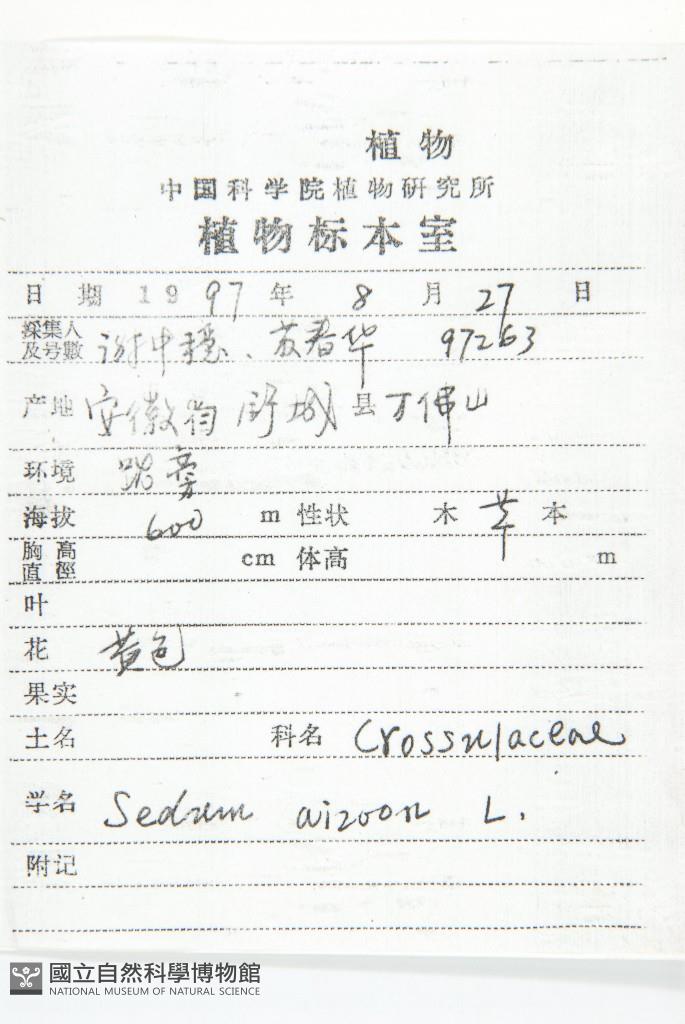 植物
中国科学院植物研究所
植物标本室
日 期 1997 年 8 月 27 日
採集人及号數 谢中稳、苏春华 97263
产地 安徽省 舒城 县 万佛山
环境 路旁
海拔 600 m 性状 木 草 本
胸高直徑 cm 体高 m
叶
花 黄色
果实
土名 科名 Crossulaceae
学名 Sedum aizoon L.
附记
國立自然科學博物館
NATIONAL MUSEUM OF NATURAL SCIENCE